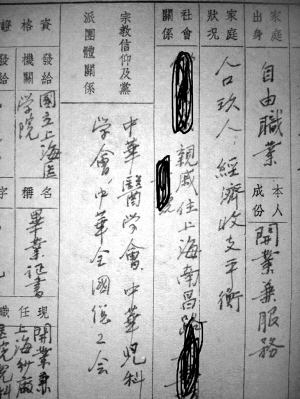 家庭出身 自由職業 本人成份 開業兼服務
家庭狀況 人口玖人,經濟收支平衡
社會關係 親戚住上海南昌路
宗教信仰及黨派團體關係 中華醫學會,中華兒科
學會,中華全國總工會
資格證 發給機關 國立上海医學院 名稱 畢業证書
現任職 開業兼
上海紗廠